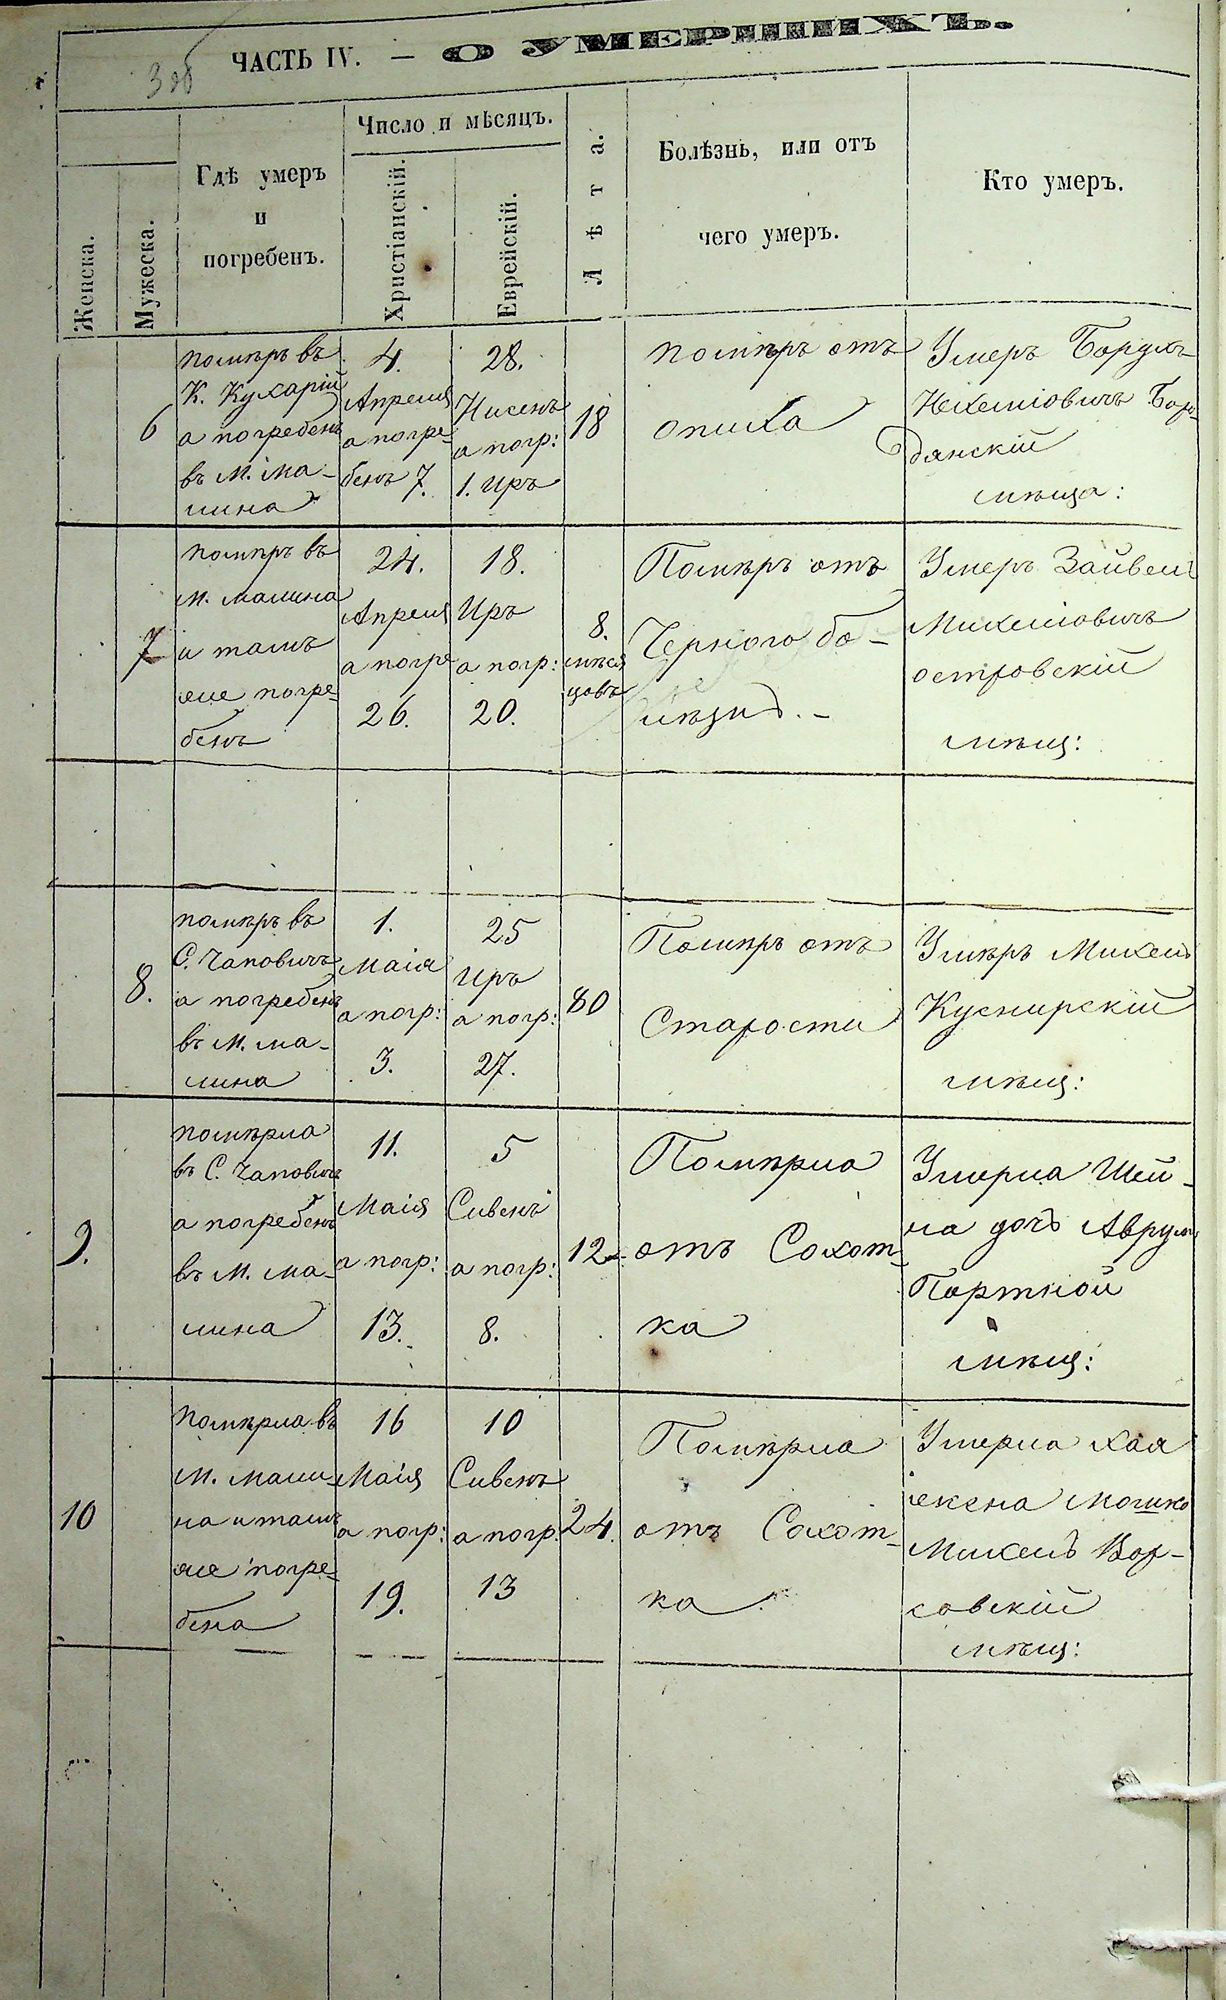 3 об
ЧАСТЬ IV. — О УМЕРШИХЪ.
Женска.
Мужеска.
Гдѣ умеръ
и
погребенъ.
Число и мѣсяцъ.
Христіанскій.
Еврейскій.
Лѣта.
Болѣзнь, или отъ
чего умеръ.
Кто умеръ.
6
помѣръ въ
К. Кухарій
а погребенъ
въ М. Ма-
лина
4.
Апреля
а погре-
бенъ 7.
28.
Нисенъ
а погр:
1. Иръ
18
помѣръ отъ
опиха
Умеръ Борухъ
Нехеміовичъ Боро-
дянскій
мѣща:
7
помѣръ въ
м. малина
и тамъ
же погре-
бенъ
24.
Апреля
а погре
26.
18.
Иръ
а погр:
20.
8.
мѣся
цовъ
Помѣръ отъ
Черного бо-
лѣзнь. -
Умеръ Зайвель
Михеліовичъ
островскій
мѣщ:
8.
помѣръ въ
С. Чаповичъ
а погребенъ
въ М. ма-
лина
1.
Маія
а погр:
3.
25
Иръ
а погр:
27.
80
Помѣръ отъ
Старости
Умѣръ Михель
Куснирскій
мѣщ:
9.
помѣрла
въ С. Чаповичъ
а погребенъ
въ М. ма-
лина
11.
Маія
а погр:
13.
5
Сивенъ
а погр:
8.
12
Помѣрла
отъ Сохот-
ка
Умерла Шей-
на дочь Аврумъ
Портной
мѣщ:
10
помѣрла въ
М. мали-
на и тамъ
же погре-
бена
16
Маія
а погр:
19.
10
Сивенъ
а погр.
13
24.
Помѣрла
отъ Сохот-
ка
Умерла Хая
жена мошко
Михель Вор-
совскій
мѣщ: